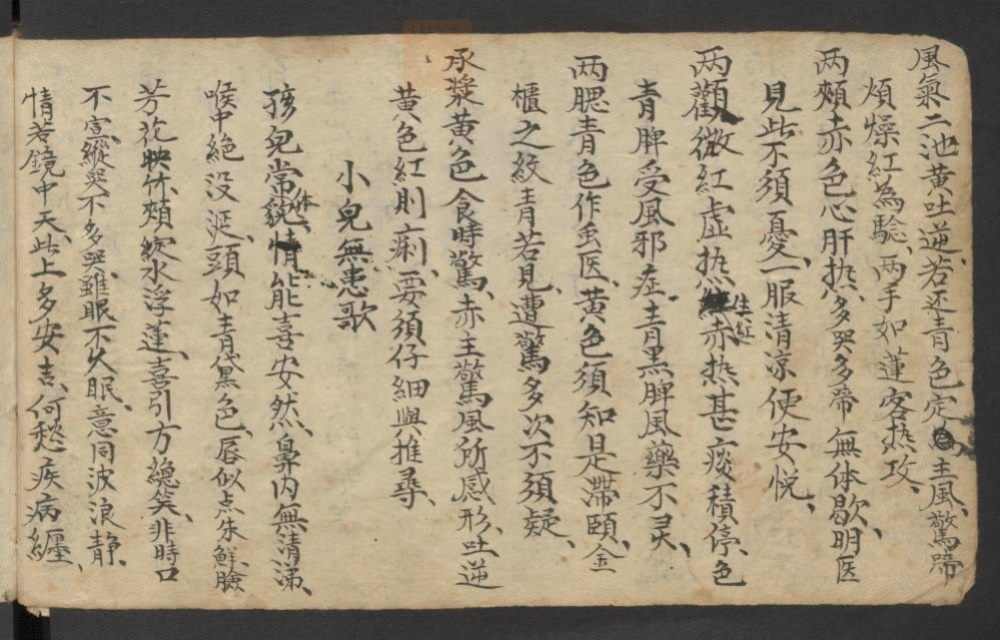 風氣二池黃吐逆、若还青色定主風、驚蹄
煩燥紅為驗、两手如蓮客热攻、
两頰赤色心肝热、多哭多啼無体歇、明医
見此不須憂、一服清凉便安悦、
两觀微紅虛热生紅赤热甚痰積停、色
青脾受風邪症、青黑脾風藥不灵、
两腮青色作虫医、黃色須知是滯頤、金
櫃之紋青若見、遭驚多次不須疑、
承漿黃色食時驚、赤主驚風所感形、吐逆
黃色紅則痢、要須仔細與推尋、
小皃無患歌
孩皃常貌、情能喜安然、鼻内無清涕、
喉中絕没涎、頭如青黛黑色、唇似点朱鮮、臉
芳花映竹、頰綻水浮蓮、喜引方總笑、非時口
不宣、縱哭不多哭、雖眠不久眠、意同波浪静、
情若鏡中天、此上多安吉、何愁疾病纏、